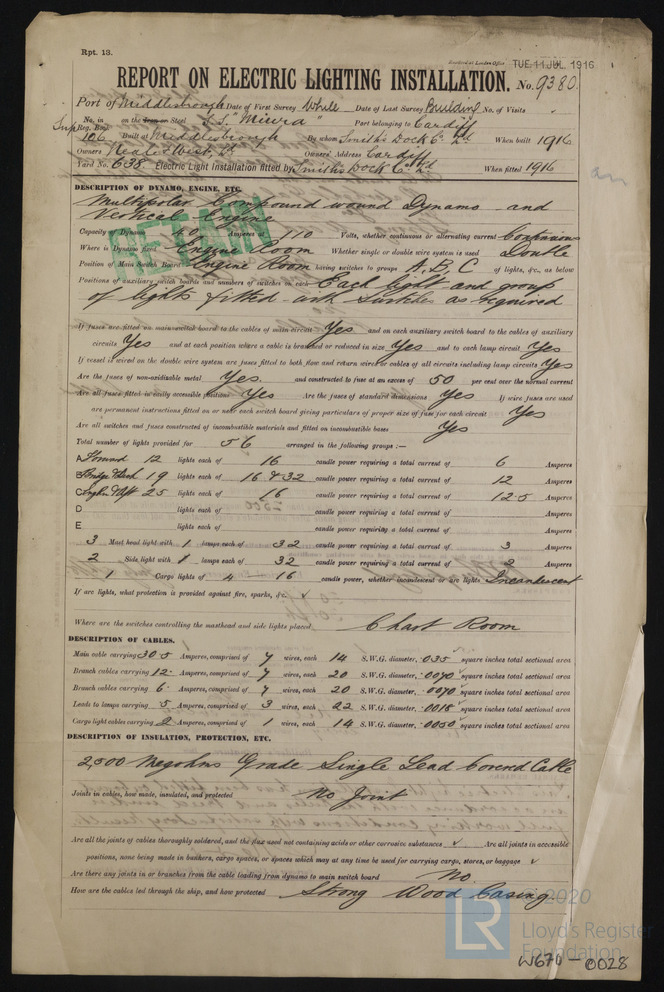 Rpt. 13.
TUE. 11 JUL. 1916
REPORT ON ELECTRIC LIGHTING INSTALLATION. No. 9380.
Port of Middlesbrough Date of First Survey While Date of Last Survey Building No. of Visits
No. in Reg. Book on the Iron or Steel S.S. "Miura" Port belonging to Cardiff
Sup 106 Built at Middlesbrough By whom Smiths Dock Co. Ld When built 1916
Owners Neale & West, Ld Owners' Address Cardiff
Yard No. 638 Electric Light Installation fitted by Smiths Dock Co. Ld When fitted 1916
DESCRIPTION OF DYNAMO, ENGINE, ETC.
Multipolar Compound wound Dynamo and
Vertical Engine
RETAIN
Capacity of Dynamo 40 Amperes at 110 Volts, whether continuous or alternating current Continuous
Where is Dynamo fixed Engine Room Whether single or double wire system is used Double
Position of Main Switch Board Engine Room having switches to groups A, B, C of lights, &c., as below
Positions of auxiliary switch boards and numbers of switches on each Each light and group
of lights fitted with Switches as required
If fuses are fitted on main switch board to the cables of main circuit Yes and on each auxiliary switch board to the cables of auxiliary
circuits Yes and at each position where a cable is branched or reduced in size Yes and to each lamp circuit Yes
If vessel is wired on the double wire system are fuses fitted to both flow and return wires or cables of all circuits including lamp circuits Yes
Are the fuses of non-oxidizable metal Yes and constructed to fuse at an excess of 50 per cent over the normal current
Are all fuses fitted in easily accessible positions Yes Are the fuses of standard dimensions Yes If wire fuses are used
are permanent instructions fitted on or near each switch board giving particulars of proper size of fuse for each circuit Yes
Are all switches and fuses constructed of incombustible materials and fitted on incombustible bases Yes
Total number of lights provided for 56 arranged in the following groups :—
A Forward 12 lights each of 16 candle power requiring a total current of 6 Amperes
B Bridge Deck 19 lights each of 16 & 32 candle power requiring a total current of 12 Amperes
C Engine & Aft 25 lights each of 16 candle power requiring a total current of 12.5 Amperes
D lights each of candle power requiring a total current of Amperes
E lights each of candle power requiring a total current of Amperes
3 Mast head light with 1 lamps each of 32 candle power requiring a total current of 3 Amperes
2 Side light with 1 lamps each of 32 candle power requiring a total current of 2 Amperes
1 Cargo lights of 4 - 16 candle power, whether incandescent or arc lights Incandescent
If arc lights, what protection is provided against fire, sparks, &c. ✓
Where are the switches controlling the masthead and side lights placed Chart Room
DESCRIPTION OF CABLES.
Main cable carrying 30.5 Amperes, comprised of 7 wires, each 14 S.W.G. diameter, .035 square inches total sectional area
Branch cables carrying 12. Amperes, comprised of 7 wires, each 20 S.W.G. diameter, .0070 square inches total sectional area
Branch cables carrying 6. Amperes, comprised of 7 wires, each 20 S.W.G. diameter, .0070 square inches total sectional area
Leads to lamps carrying .5 Amperes, comprised of 3 wires, each 22 S.W.G. diameter, .0018 square inches total sectional area
Cargo light cables carrying 2 Amperes, comprised of 1 wires, each 14 S.W.G. diameter, .0050 square inches total sectional area
DESCRIPTION OF INSULATION, PROTECTION, ETC.
2,500 Megohms Grade Single Lead Covered Cable
Joints in cables, how made, insulated, and protected No Joint
Are all the joints of cables thoroughly soldered, and the flux used not containing acids or other corrosive substances ✓ Are all joints in accessible
positions, none being made in bunkers, cargo spaces, or spaces which may at any time be used for carrying cargo, stores, or baggage ✓
Are there any joints in or branches from the cable leading from dynamo to main switch board No
How are the cables led through the ship, and how protected Strong Wood Casing
© 2020
LR
Lloyd's Register
Foundation
W670-0028